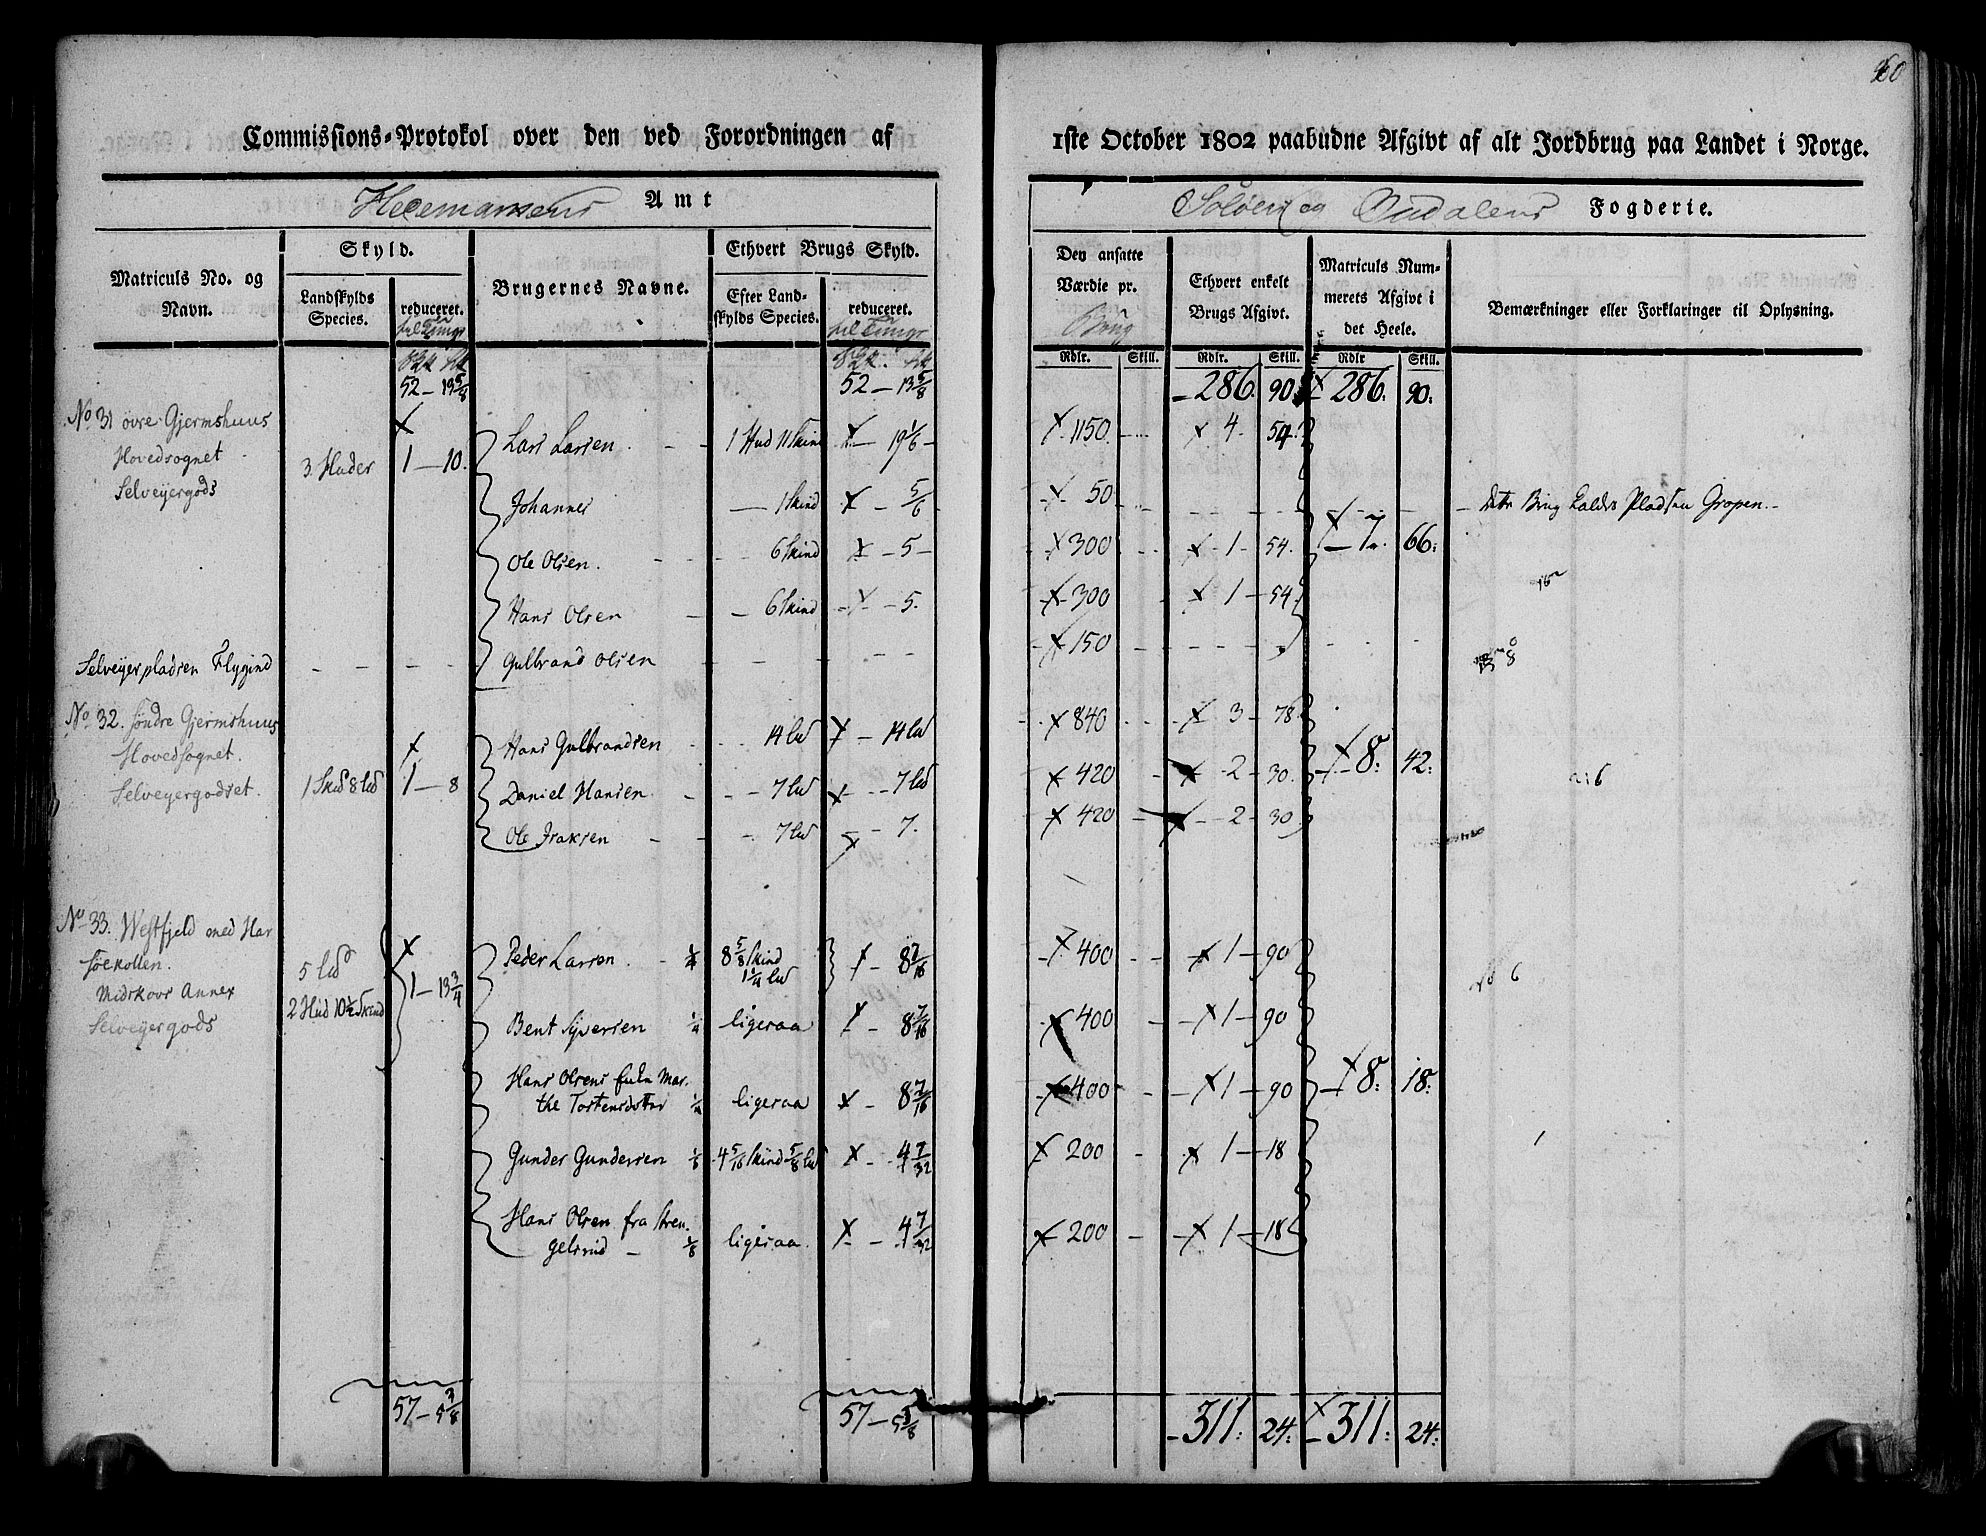 60
Commissions-Protokol over den ved Forordningen af 1ste October 1802 paabudne Afgivt af alt Jordbrug paa Landet i Norge.
Hedemarkens Amt
Soløer og Oudalens Fogderie.
Matriculs No. og Navn.
Skyld.
Landskylds Species.
reduceret.
Brugernes Navne.
Ethvert Brugs Skyld.
Efter Landskylds Species.
reduceret.
Den ansatte Værdie pr. Brug
Ethvert enkelt Brugs Afgivt.
Matriculs Nummerets Afgivt i det Heele.
Bemærkninger eller Forklaringer til Oplysning.
Rdlr. Skill. Rdlr. Skill. Rdlr Skill.
52 — 13 5/8 52 — 13 5/8 286. 90 286. 90.
No 31 øvre Gjermshuus
Hovedsognet
Selveyergods
3 Huder 1 — 10.
Lars Larsen 1 Hud 11 Skind 19 1/6 1150 4. 54.
Johannes 1 Skind 5/6 50
Ole Olsen. 6 Skind 5 300 1 54. 7. 66.
Hans Olsen 6 Skind 5. 300 1 54
Selveyerpladsen Flygind Gulbrand Olsen 150
dette Brug kaldes Pladsen Gropen.
No 32. søndre Gjermshuus
Hovedsognet.
Selveyergodset.
1 Skid 8 lød 1 — 8
Hans Gulbrandsen 14 lød 14 lød 840 3 78
Daniel Hansen 7 lød 7 lød 420 2 30. 8. 42.
Ole Isaksen 7 lød 7. 420 2 30
No 33. Westfjeld med Har
søekollen.
Midskovs Annex
Selveyergods
5 lød
2 Hud 10 1/2 Skind 1 — 13 3/4
Peder Larsen 1/4 8 5/8 Skind 1 1/4 lød 8 7/16 400 1 90
Bent Syversen 1/4 ligesaa 8 7/16 400 1 90
Hans Olsens Enke Mar
the Tostensdatter 1/4 ligesaa 8 7/16 400 1 90 8. 18.
Gunder Gundersen 1/8 4 5/16 Skind 5/8 lød 4 7/32 200 1 18
Hans Olsen fra Stren
gelsrud 1/8 ligesaa. 4 7/32 200 1 18
57 — 5 3/8 57 — 5 3/8 311. 24. 311. 24.